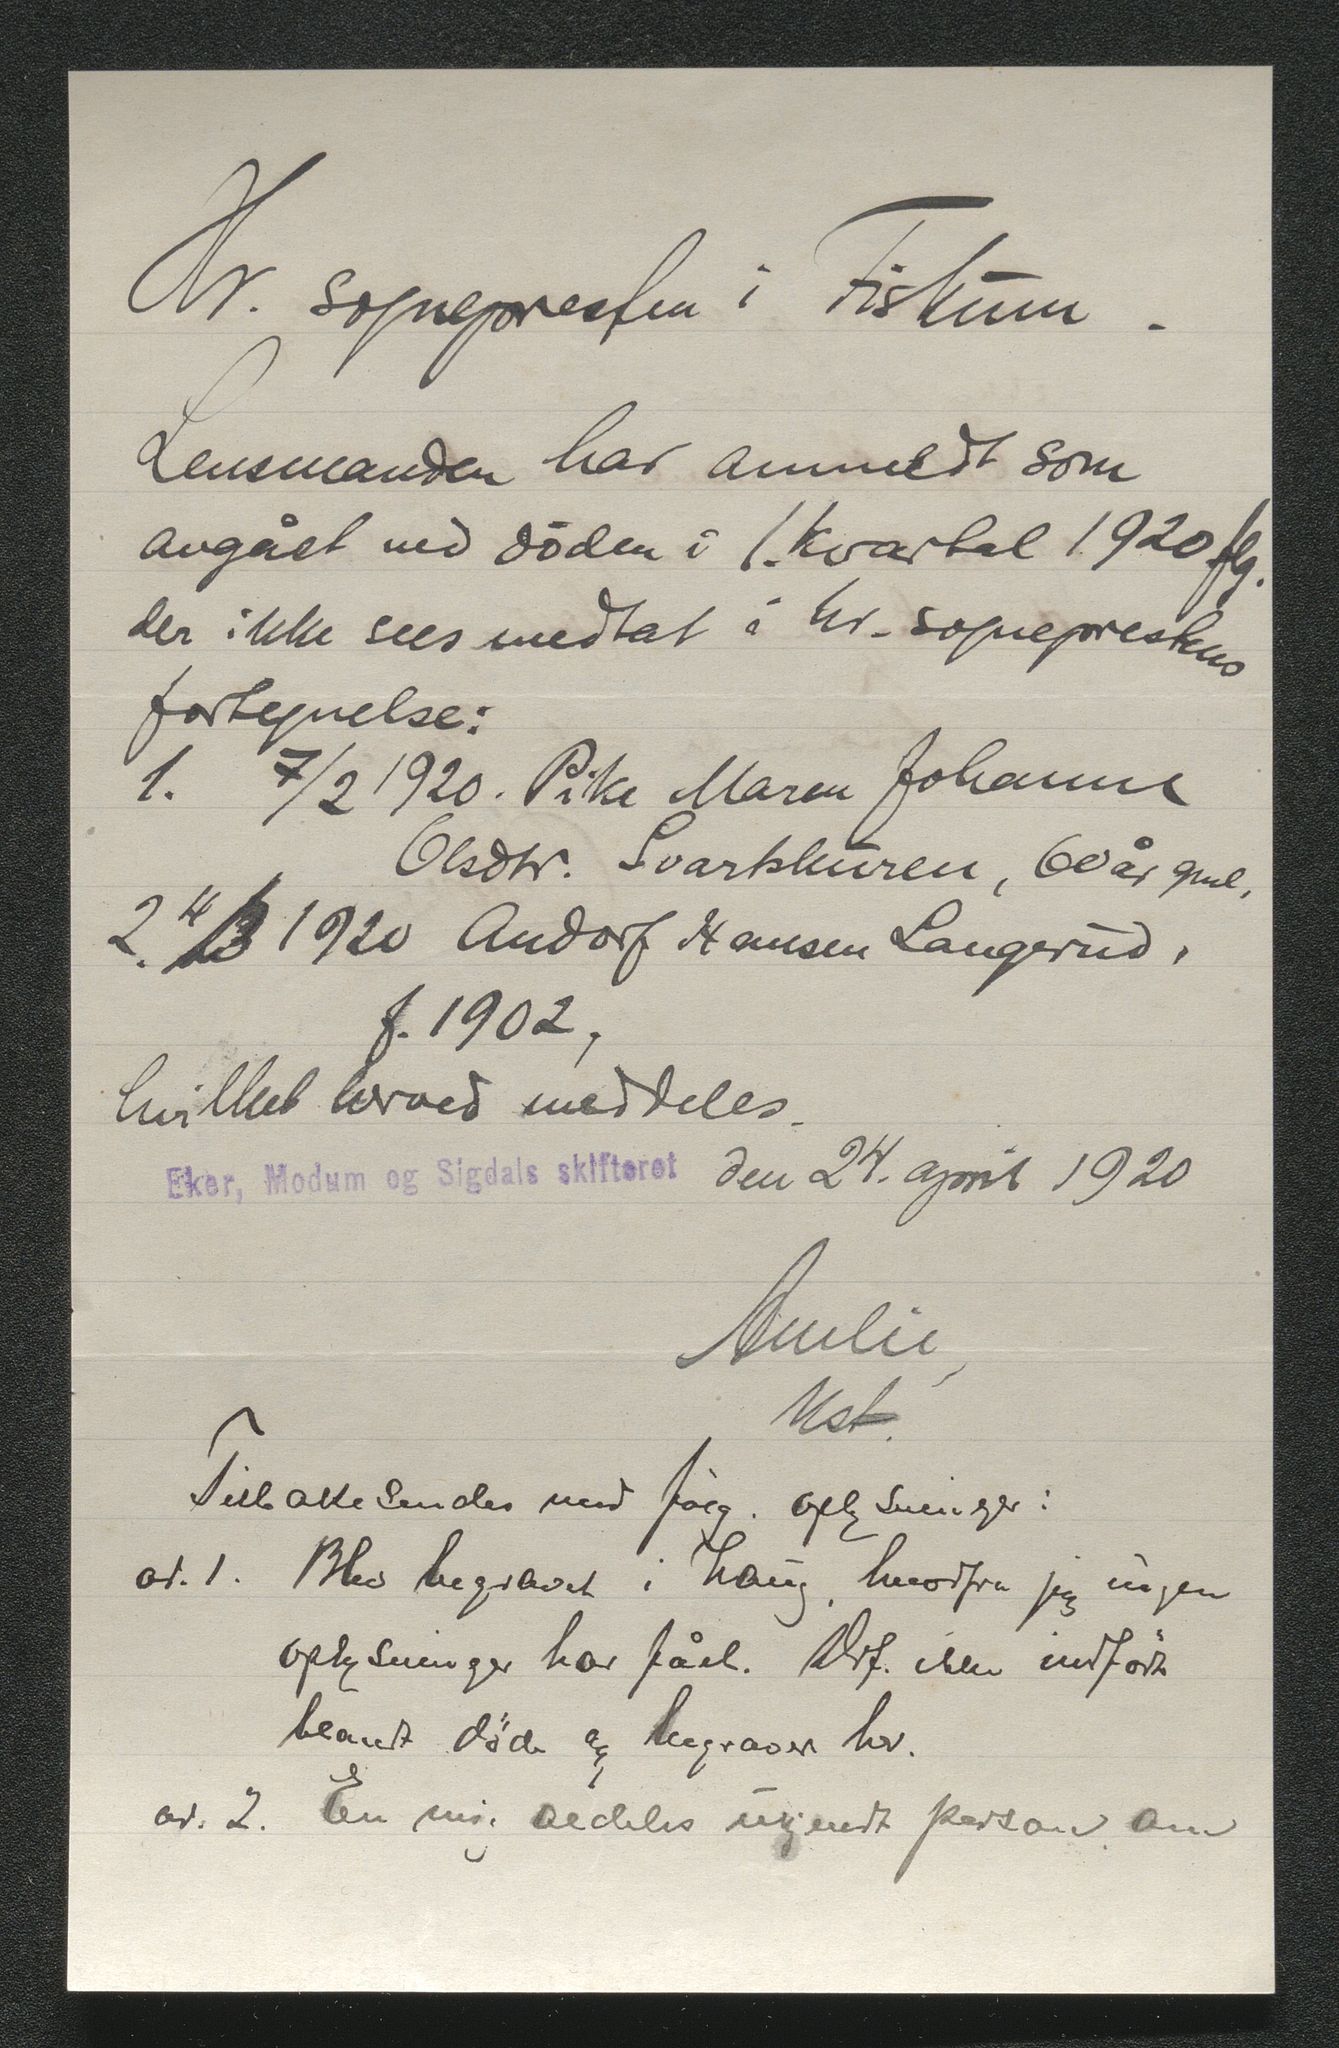 Hr. sognepresten i Fiskum.
Lensmanden har anmeldt som
avgået ved döden i 1. kvartal 1920 flg.
der ikke sees medtat i hr. sogneprestens
fortegnelse:
1. 7/2 1920. Pike Maren Johanne
Olsdtr. Svartskuren, 60 år gml.
2. 4/3 1920 Andorf Hansen Langerud,
f. 1902,
hvilket herved meddeles.
Eker, Modum og Sigdals skifteret den 24. april 1920
Kst.
Tilbakesendes med fölg. oplysninger:
ad. 1. Blev begravet i Haug, hvorfra jeg ingen
oplysninger har fået. Derf. ikke indfört
blandt döde og begravet her.
ad. 2. En mig aldeles ukjendt person om